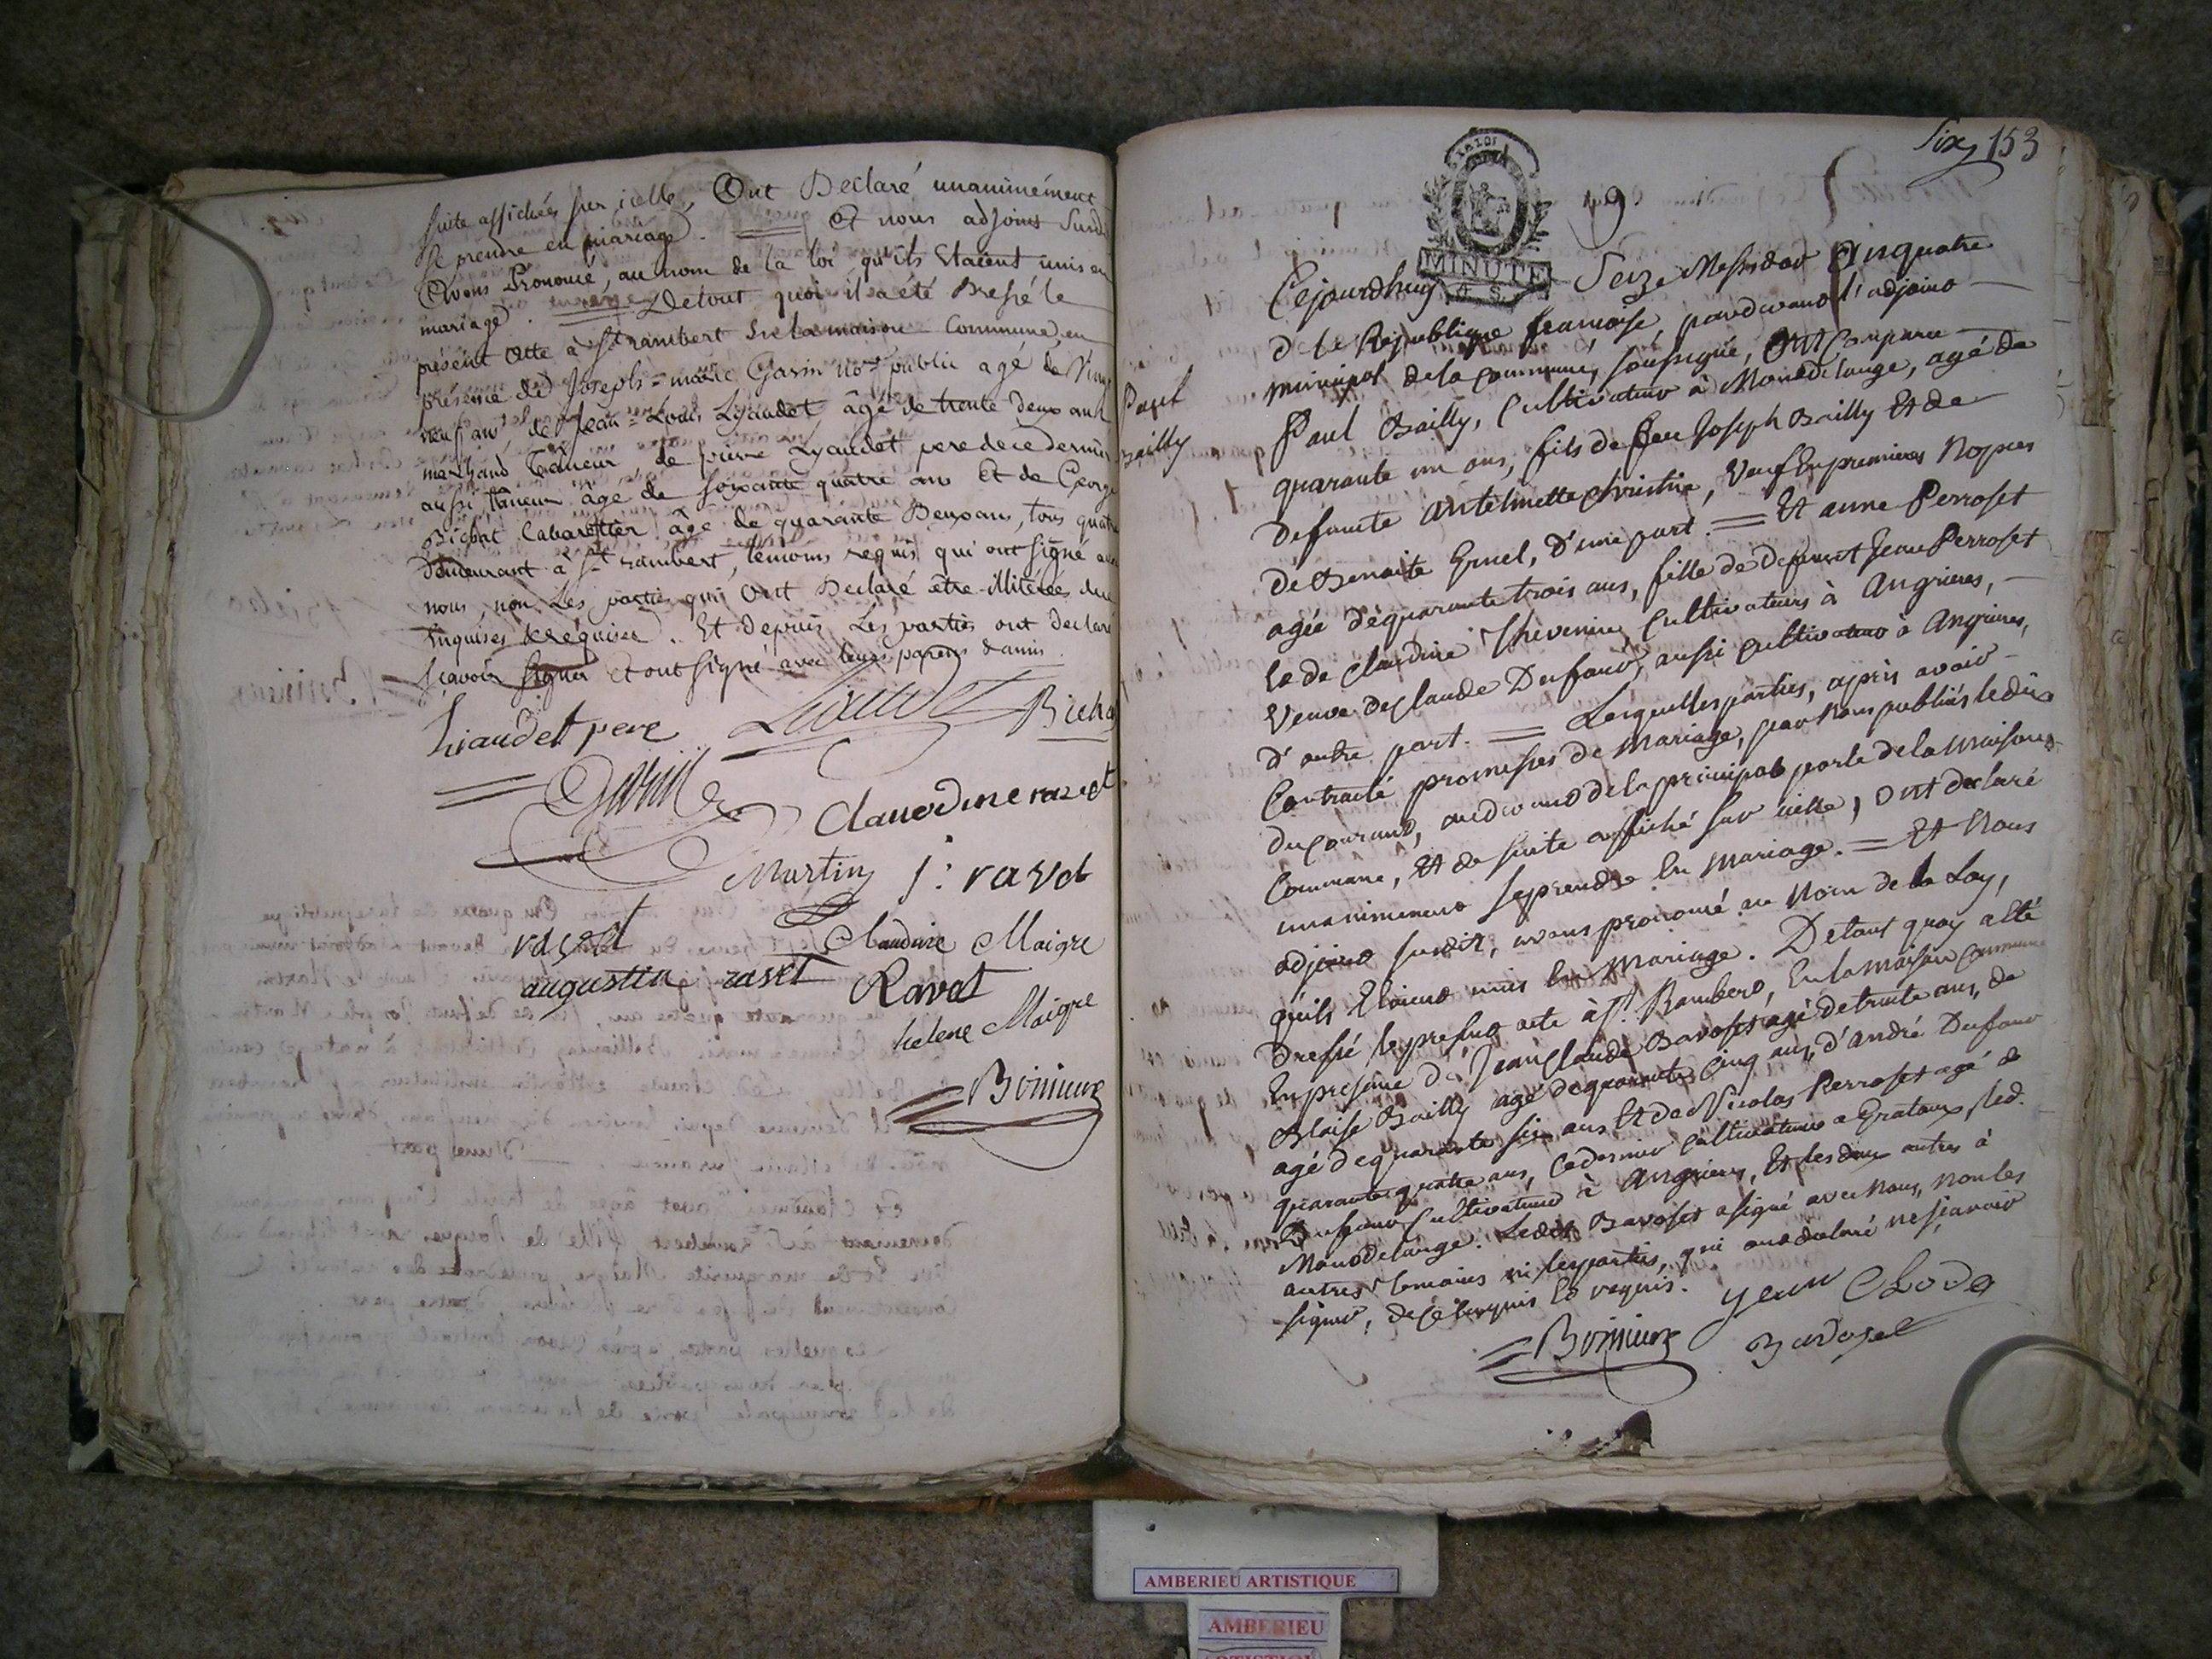 suite affichées sur icelle, Ont Déclaré unanimément
se prendre en mariage. = Et nous adjoint Susdit
Avons Prononcé, au nom de la loi qu'ils Etaient unis en
mariage. = De tout quoi il a été Dressé le
présent Acte à St rambert en la maison Commune, en
présence de Joseph=marie Garin not.re public agé de Vingt
neuf ans, de Jean=Louis Lyaudet âgé de trente deux ans
marchand Taneur, de pierre Lyaudet pere de ce dernier
aussi Taneur âgé de soixante quatre ans Et de George
Bichat Cabaretier âgé de quarante Deux ans, tous quatre
demeurant à St rambert, témoins requis qui ont signé avec
nous, non Les parties qui Ont Declaré être illitérées de ce
Enquises & requises. Et depuis Les parties ont declaré
sçavoir signer et ont signé avec leurs parens & amis.
Liaudet pere Liaudet Bichat
Garin
Claudine ravet
Martin J: ravet
ravet Claudine Maigre
augustin ravet Ravet
helene Maigre
Bonieux
Six 153
49
MINUTE
4 S.
Paul
Bailly
Cejourdhuy Seize Messidor An quatre
de la République francaise, pardevant l'adjoint
municipal de la commune, soussigné, Ont Comparu
Paul Bailly, Cultivateur à Montdelange, agé de
quarante un ans, fils de feu Joseph Bailly Et de
defunte Anthelmette Christin, Veuf En premieres Nopces
de Benoite Gruel, d'une part. = Et anne Perroset
agée de quarante trois ans, fille de defunt Jean Perroset
Et de Claudine Thevenin, Cultivateurs à Angrieres,
Veuve de Claude Dufour, aussi Cultivateur à Angrieres,
d'autre part. = Lesquelles parties, après avoir
Contracté promesses de Mariage, par Nous publiés le dix
du Courant, audevant de la principale porte de la maison
Commune, Et de suite affiché sur icelle, Ont declaré
unanimement se prendre En Mariage. = Et Nous
adjoint susdit, avons prononcé au Nom de la Loy,
qu'ils Etoient unis En Mariage. De tout quoy a été
Dressé le present acte à St. Rambert, En la maison commune
En presence de Jean Claude Bavoset agé de trente ans, de
Blaise Bailly agé de quarante Cinq ans, d'André Dufour
agé de quarante six ans Et de Nicolas Perroset agé de
quarante quatre ans, Ce dernier cultivateur à Gratoux, led.
Dufour Cultivateur à Angrieres, Et les deux autres à
Montdelange. Ledit Bavoset a signé avec Nous, non les
autres temoins ni les parties, qui ont declaré ne sçavoir
signer, de ce Enquis Et requis.
Bonieux
Bavoset
AMBERIEU ARTISTIQUE
AMBERIEU
ARTISTIQUE